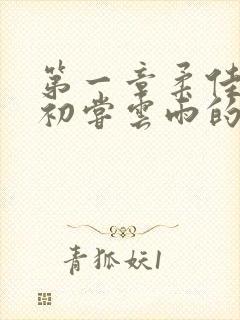 第一章柔佳
初尝云雨的
青狐妖1